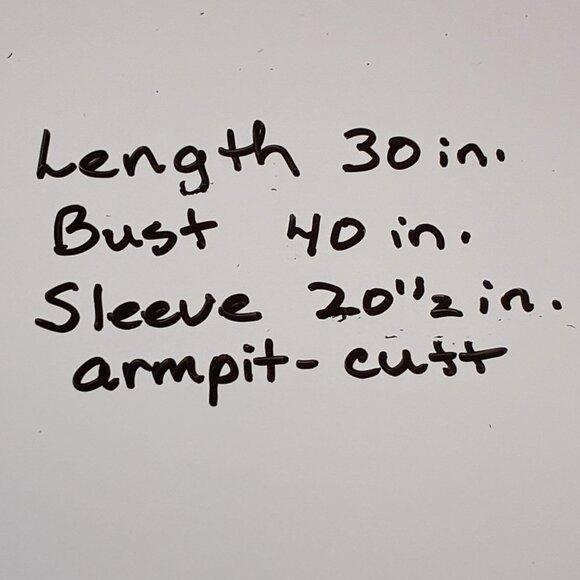 Length 30 in.
Bust 40 in.
Sleeve 20"2 in.
armpit- cuff